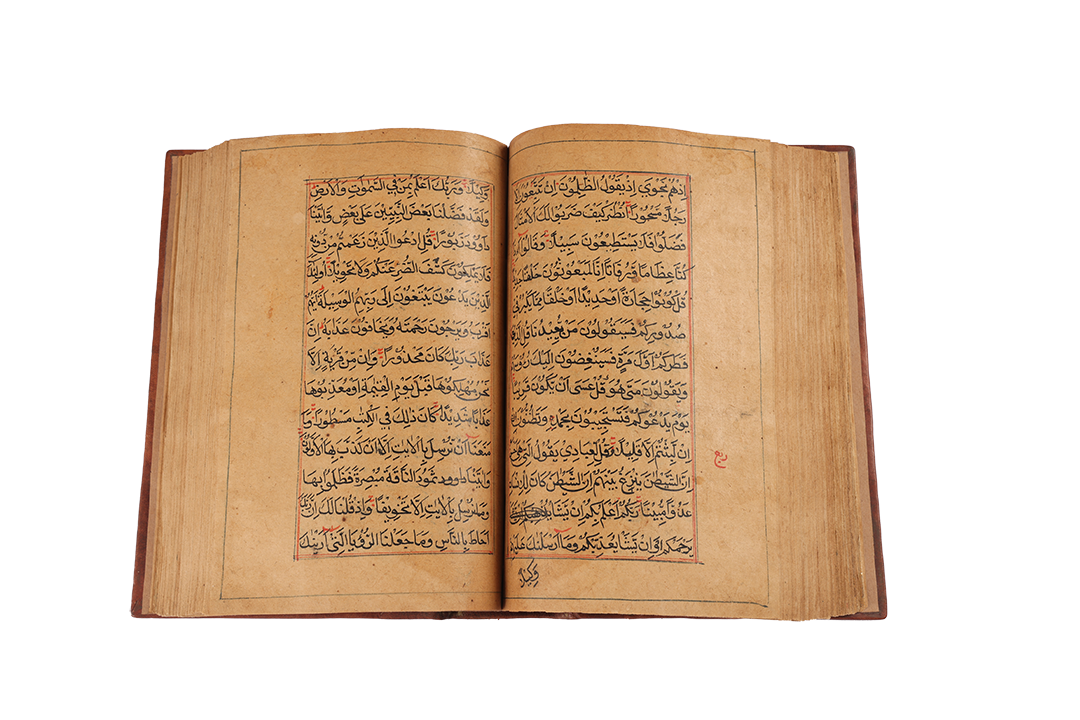 اِذْهُمْ نَجْوٰى اِذْ يَقُولُ الظّٰلِمُوْنَ اِنْ تَتَّبِعُوْنَ
رَجُلًا مَسْحُوْرًا اُنْظُرْ كَيْفَ ضَرَبُوْا لَكَ الْاَمْثَالَ
فَضَلُّوْا فَلَا يَسْتَطِيْعُوْنَ سَبِيْلًا وَقَالُوْا
كُنَّا عِظَامًا وَرُفَاتًا اِنَّا لَمَبْعُوْثُوْنَ خَلْقًا
قُلْ كُوْنُوْا حِجَارَةً اَوْ حَدِيْدًا اَوْ خَلْقًا مِمَّا يَكْبُرُ فِيْ
صُدُوْرِكُمْ فَسَيَقُوْلُوْنَ مَنْ يُعِيْدُنَا قُلِ الَّذِيْ
فَطَرَكُمْ اَوَّلَ مَرَّةٍ فَسَيُنْغِضُوْنَ اِلَيْكَ
وَيَقُوْلُوْنَ مَتٰى هُوَ قُلْ عَسٰى اَنْ يَكُوْنَ قَرِيْبًا
يَوْمَ يَدْعُوْكُمْ فَتَسْتَجِيْبُوْنَ بِحَمْدِهٖ وَتَظُنُّوْنَ
اِنْ لَبِثْتُمْ اِلَّا قَلِيْلًا وَقُلْ لِعِبَادِيْ يَقُوْلُ الَّتِيْ هِيَ
اِنَّ الشَّيْطٰنَ يَنْزَغُ بَيْنَهُمْ اِنَّ الشَّيْطٰنَ كَانَ
عَدُوًّا مُبِيْنًا رَبُّكُمْ اَعْلَمُ بِكُمْ اِنْ يَشَا
يَرْحَمْكُمْ اَوْ اِنْ يَشَا يُعَذِّبْكُمْ وَمَا اَرْسَلْنٰكَ
وَكِيْلًا
وَكِيْلًا وَرَبُّكَ اَعْلَمُ بِمَنْ فِي السَّمٰوٰتِ وَالْاَرْضِ
وَلَقَدْ فَضَّلْنَا بَعْضَ النَّبِيِّيْنَ عَلٰى بَعْضٍ وَاٰتَيْنَا
دَاوٗدَ زَبُوْرًا قُلِ ادْعُوا الَّذِيْنَ زَعَمْتُمْ مِنْ دُوْنِهٖ
فَلَا يَمْلِكُوْنَ كَشْفَ الضُّرِّ عَنْكُمْ وَلَا تَحْوِيْلًا اُولٰئِكَ
الَّذِيْنَ يَدْعُوْنَ يَبْتَغُوْنَ اِلٰى رَبِّهِمُ الْوَسِيْلَةَ اَيُّهُمْ
اَقْرَبُ وَيَرْجُوْنَ رَحْمَتَهٗ وَيَخَافُوْنَ عَذَابَهٗ اِنَّ
عَذَابَ رَبِّكَ كَانَ مَحْذُوْرًا وَاِنْ مِّنْ قَرْيَةٍ اِلَّا
نَحْنُ مُهْلِكُوْهَا قَبْلَ يَوْمِ الْقِيٰمَةِ اَوْ مُعَذِّبُوْهَا
عَذَابًا شَدِيْدًا كَانَ ذٰلِكَ فِي الْكِتٰبِ مَسْطُوْرًا وَمَا
مَنَعَنَا اَنْ نُرْسِلَ بِالْاٰيٰتِ اِلَّا اَنْ كَذَّبَ بِهَا الْاَوَّلُوْنَ
وَاٰتَيْنَا ثَمُوْدَ النَّاقَةَ مُبْصِرَةً فَظَلَمُوْا بِهَا
وَمَا نُرْسِلُ بِالْاٰيٰتِ اِلَّا تَخْوِيْفًا وَاِذْ قُلْنَا لَكَ اِنَّ رَبَّكَ
اَحَاطَ بِالنَّاسِ وَمَا جَعَلْنَا الرُّؤْيَا الَّتِيْ اَرَيْنٰكَ